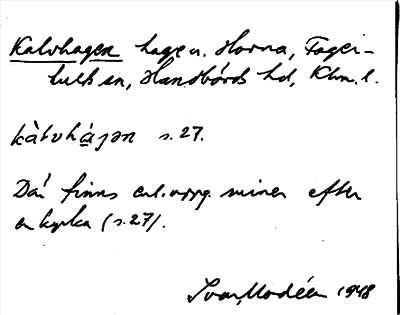 Kalvhagen hage u. Horna, Fager-
hult sn, Handbörds hd, Klm. l.
kàlvhágən s. 27.
Där finns enl. uppg. ruiner efter
en kyrka (s. 27).
Ivar Modéer 1948